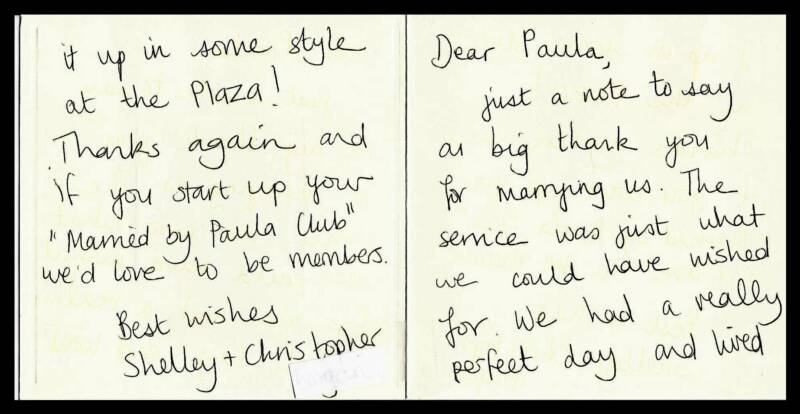 Dear Paula,
just a note to say
a big thank you
for marrying us. The
service was just what
we could have wished
for. We had a really
perfect day and lived
it up in some style
at the Plaza!
Thanks again and
if you start up your
"Married by Paula Club"
we'd love to be members.
Best wishes
Shelley + Christopher